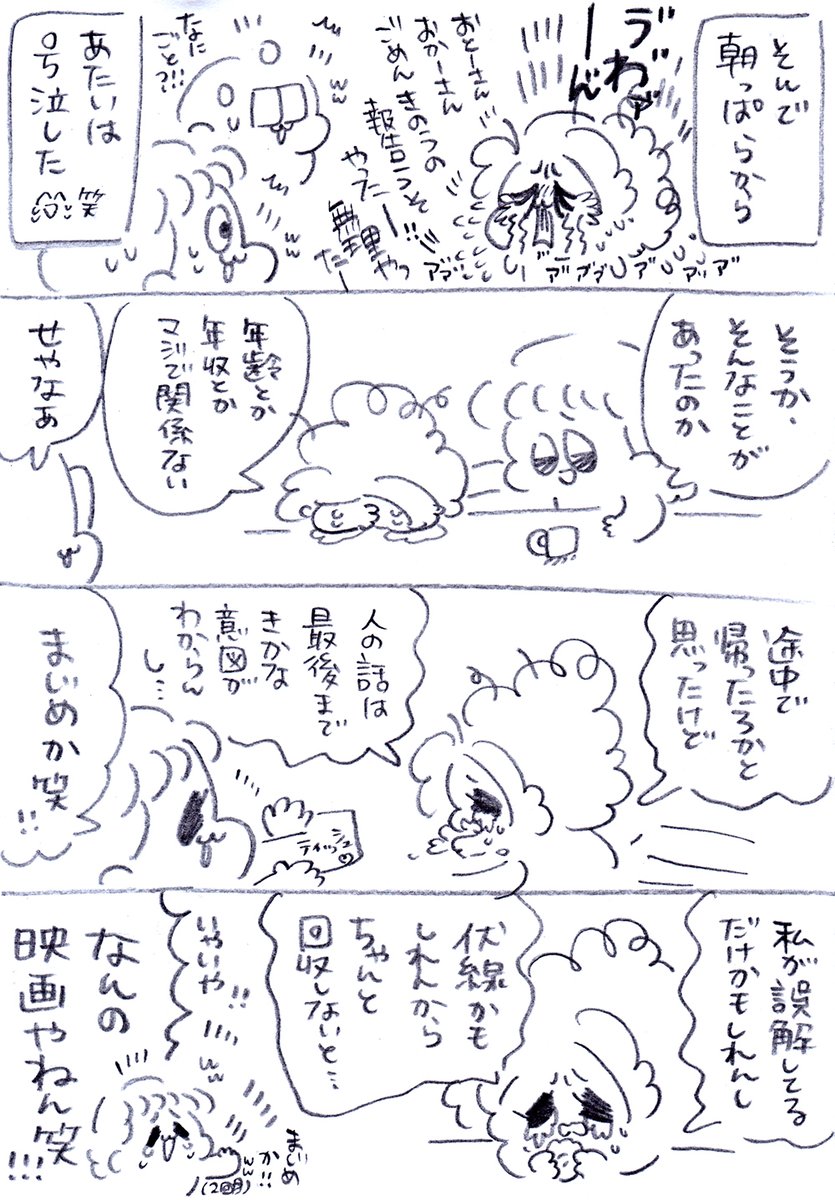 そんで
朝っぱらから
うわ゛ぁ
ーーん
おとーさん
おかーさん
ごめんきのうの
報告うそ
やったー!!
無理やっ
たー
ア゛ア゛
なに
ごと?!!
あたいは
号泣した 笑
そうか、
そんなことが
あったのか
年齢とか
年収とか
マジで関係ない
せやなぁ
途中で
帰ったろかと
思ったけど
人の話は
最後まで
きかな
意図が
わからん
し…
ティッシュ♡
まじめか笑
!!
私が誤解してる
だけかもしれんし
伏線かも
しれんから
ちゃんと
回収しないと…
いやいや!!
なんの
映画やねん笑
!!!
まじめ
か!!
(2回目)